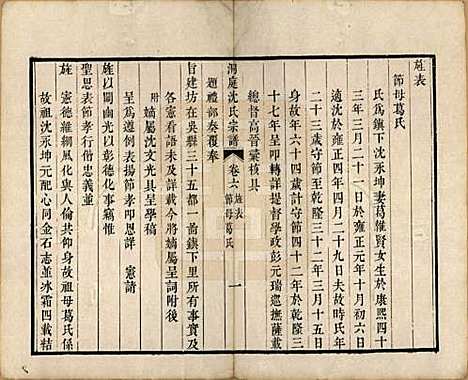 旌表
節母葛氏
氏爲鎮下沈永坤妻葛維賢女生於康熙四十
三年三月二十一日於雍正元年十月初六日
適沈於雍正四年四月二十九日夫故時氏年
二十三歲守節至乾隆三十二年三月十五日
身故年六十四歲計守節四十二年於乾隆三
十七年呈卽轉詳提督學政彭元瑞巡撫薩載
總督高晉彙核具
洞庭沈氏宗譜
卷六
旌表
節母葛氏
一
題禮部奏覆奉
旨建坊在吳縣三十五都一啚鎮下里所有事實及
各憲看語未及詳載今將嫡屬呈詞附後
附 嫡屬沈文光具呈學稿
呈爲遵例表揚節孝叩恩詳
憲請
旌以闡幽光以彰德化事竊惟
聖思表節孝行偕忠義並
旌
憲德維綱風化與人倫共仰身故祖母葛氏係
故祖沈永坤元配心同金石志並冰霜四載結